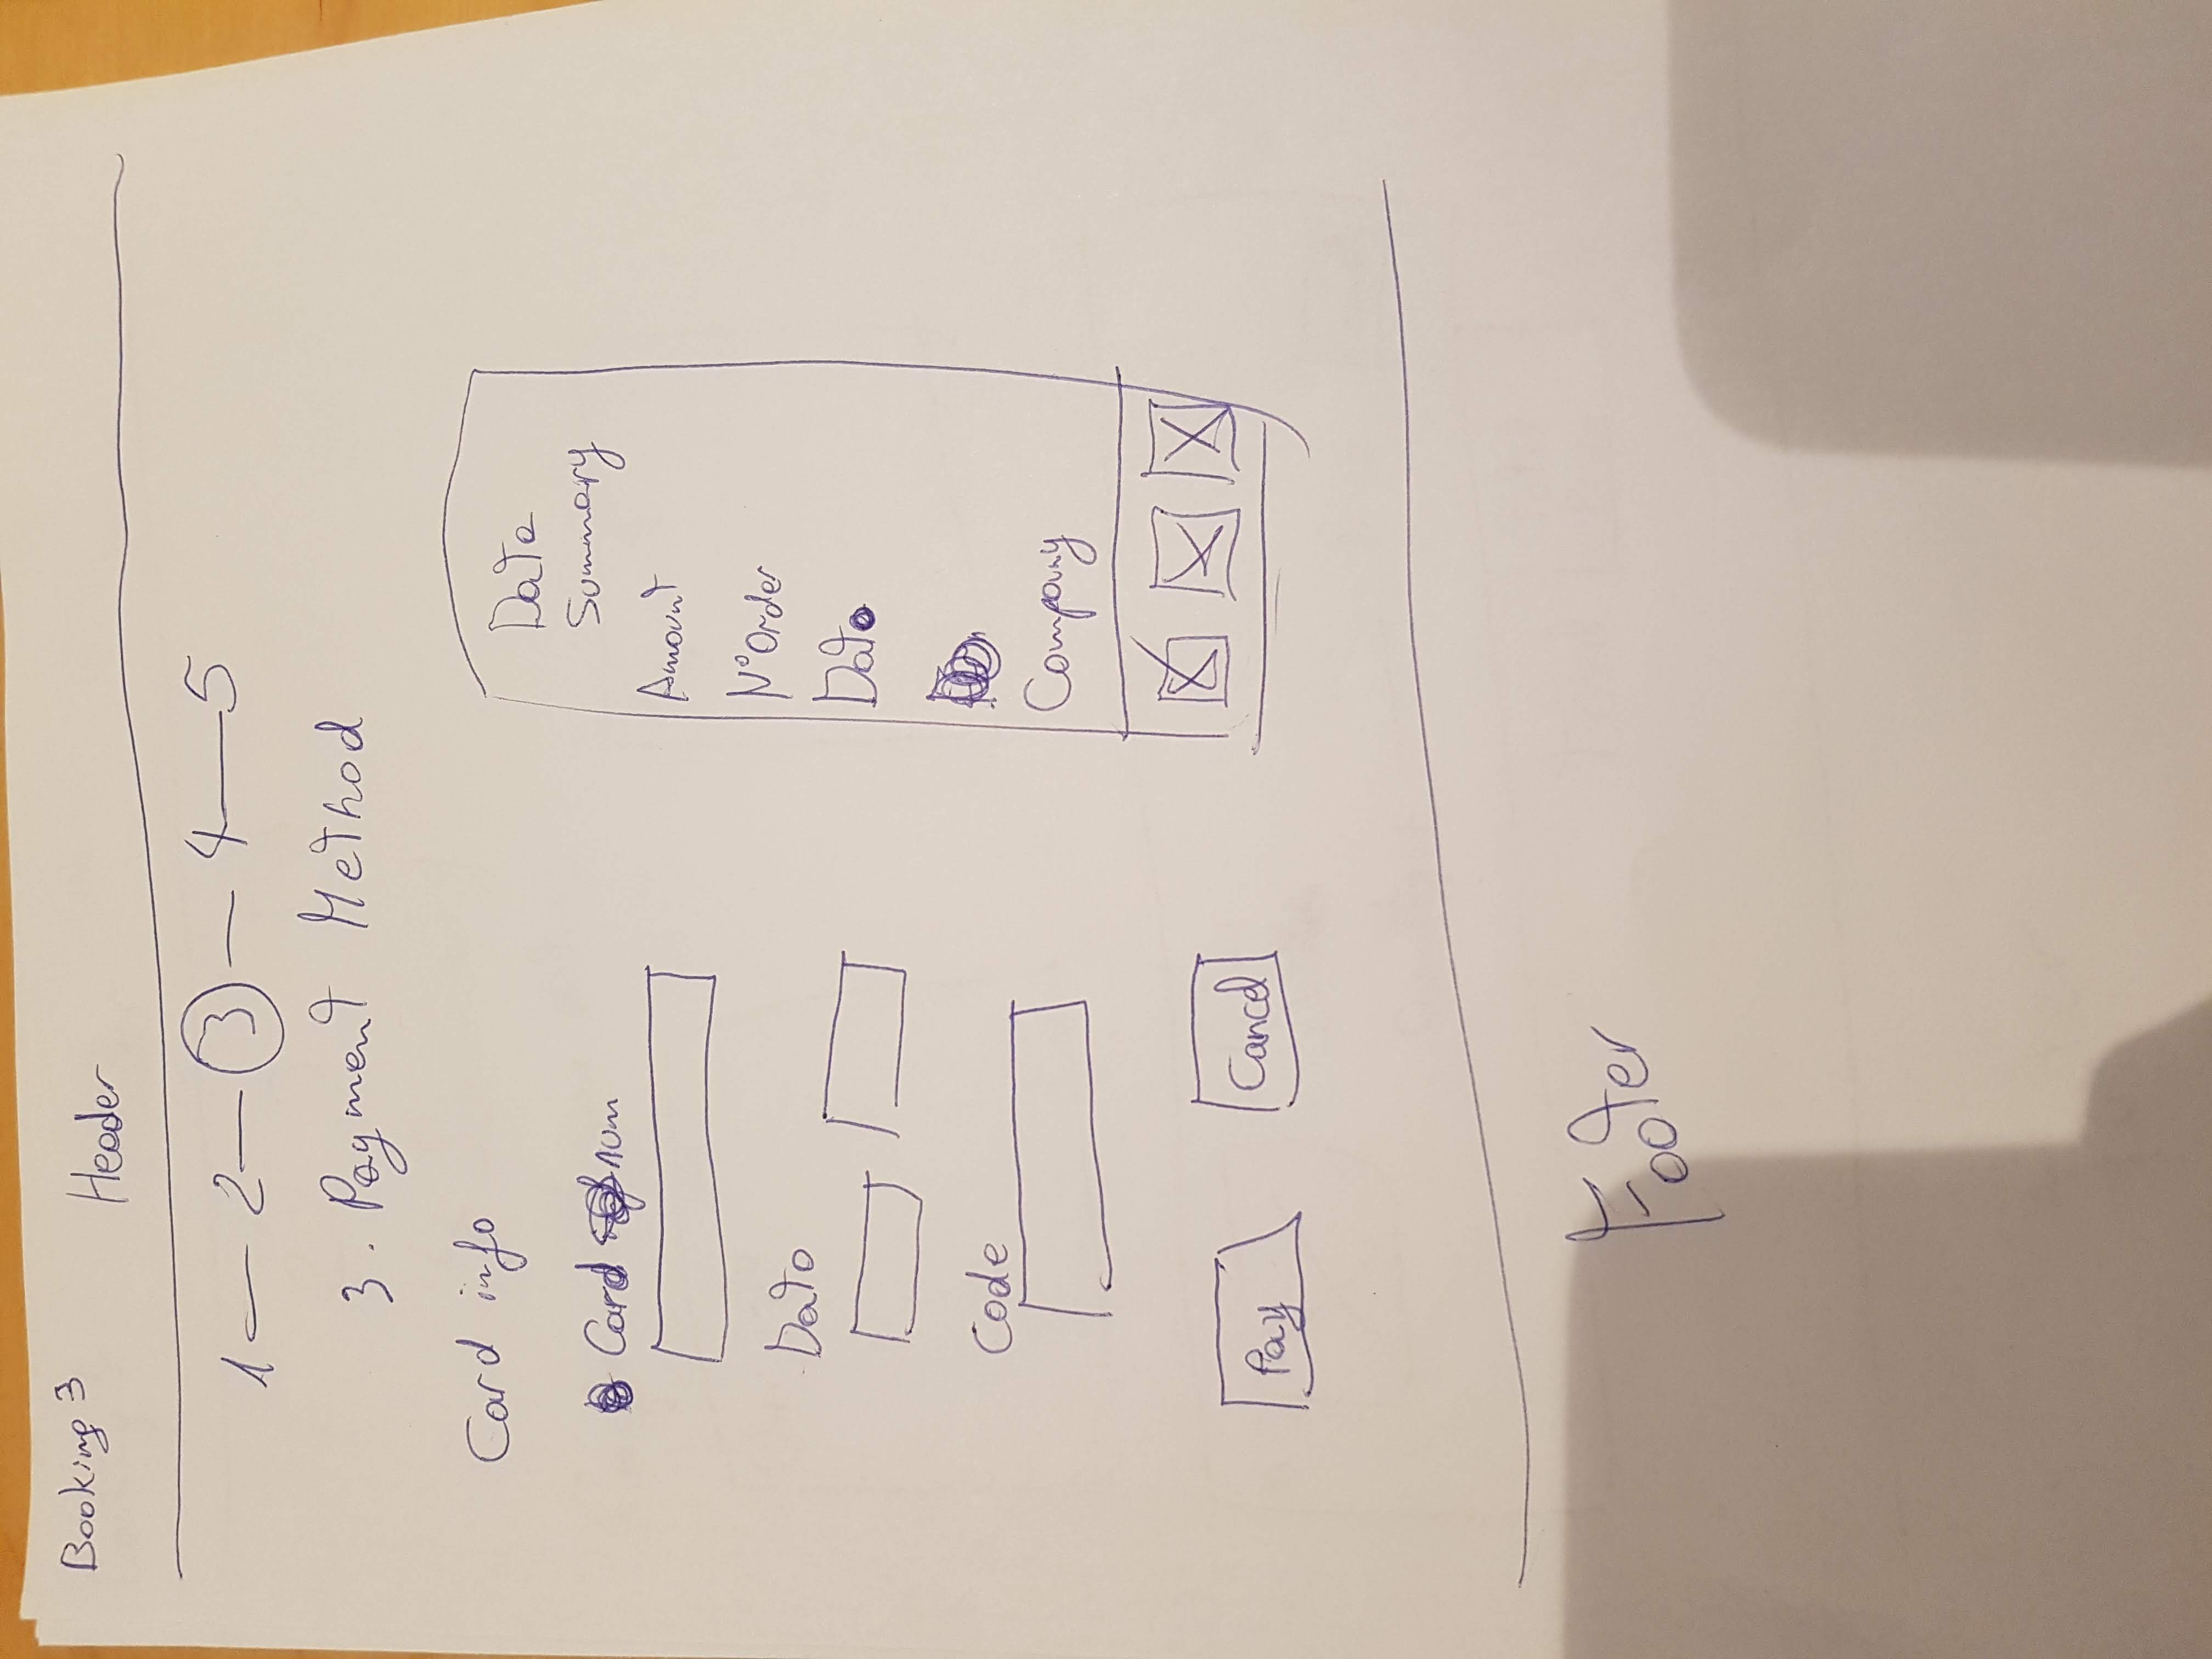 Booking 3
Header
1 — 2 — 3 — 4 — 5
3. Payment Method
Card info
Card num
Dato
Code
Pay
Cancel
Data
Summary
Amount
Nº Order
Dato
Company
Footer